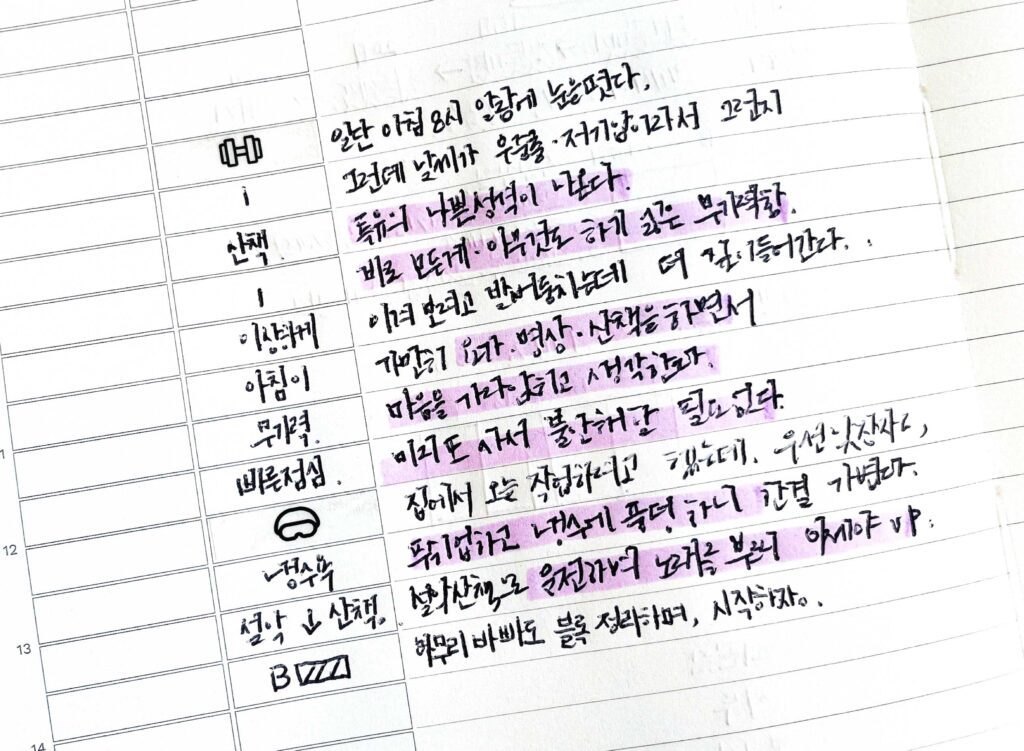 일단 아침 8시 알람에 눈을떳다.
그런데 날씨가 우중충·저기압이라서 그런지
특유의 나쁜성격이 나온다.
바로 모든게·아무것도 하기 싫은 무기력함.
이겨 보려고 발버둥치는데 더 깊이들어간다..
가만히 요가.명상·산책을하면서
마음을 가라앉히고 생각한다.
미리도 사서 불안해할 필요없다.
집에서 오늘 작업하려고 했는데. 우선 낮잠자고,
픽업하고 냉수에 풍덩 하니 한결 가볍다.
설악산책으로 운전하며 노래를 부르니 이제야 up.
아무리 바빠도 블록 정리하며, 시작하자.
산책.
이상하게
아침이
무기력.
빠른점심.
12
냉수욕
설악 ↓ 산책.
13
B
14